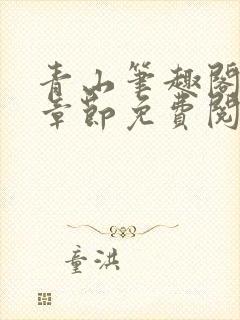 青山笔趣阁
章节免费阅
童洪